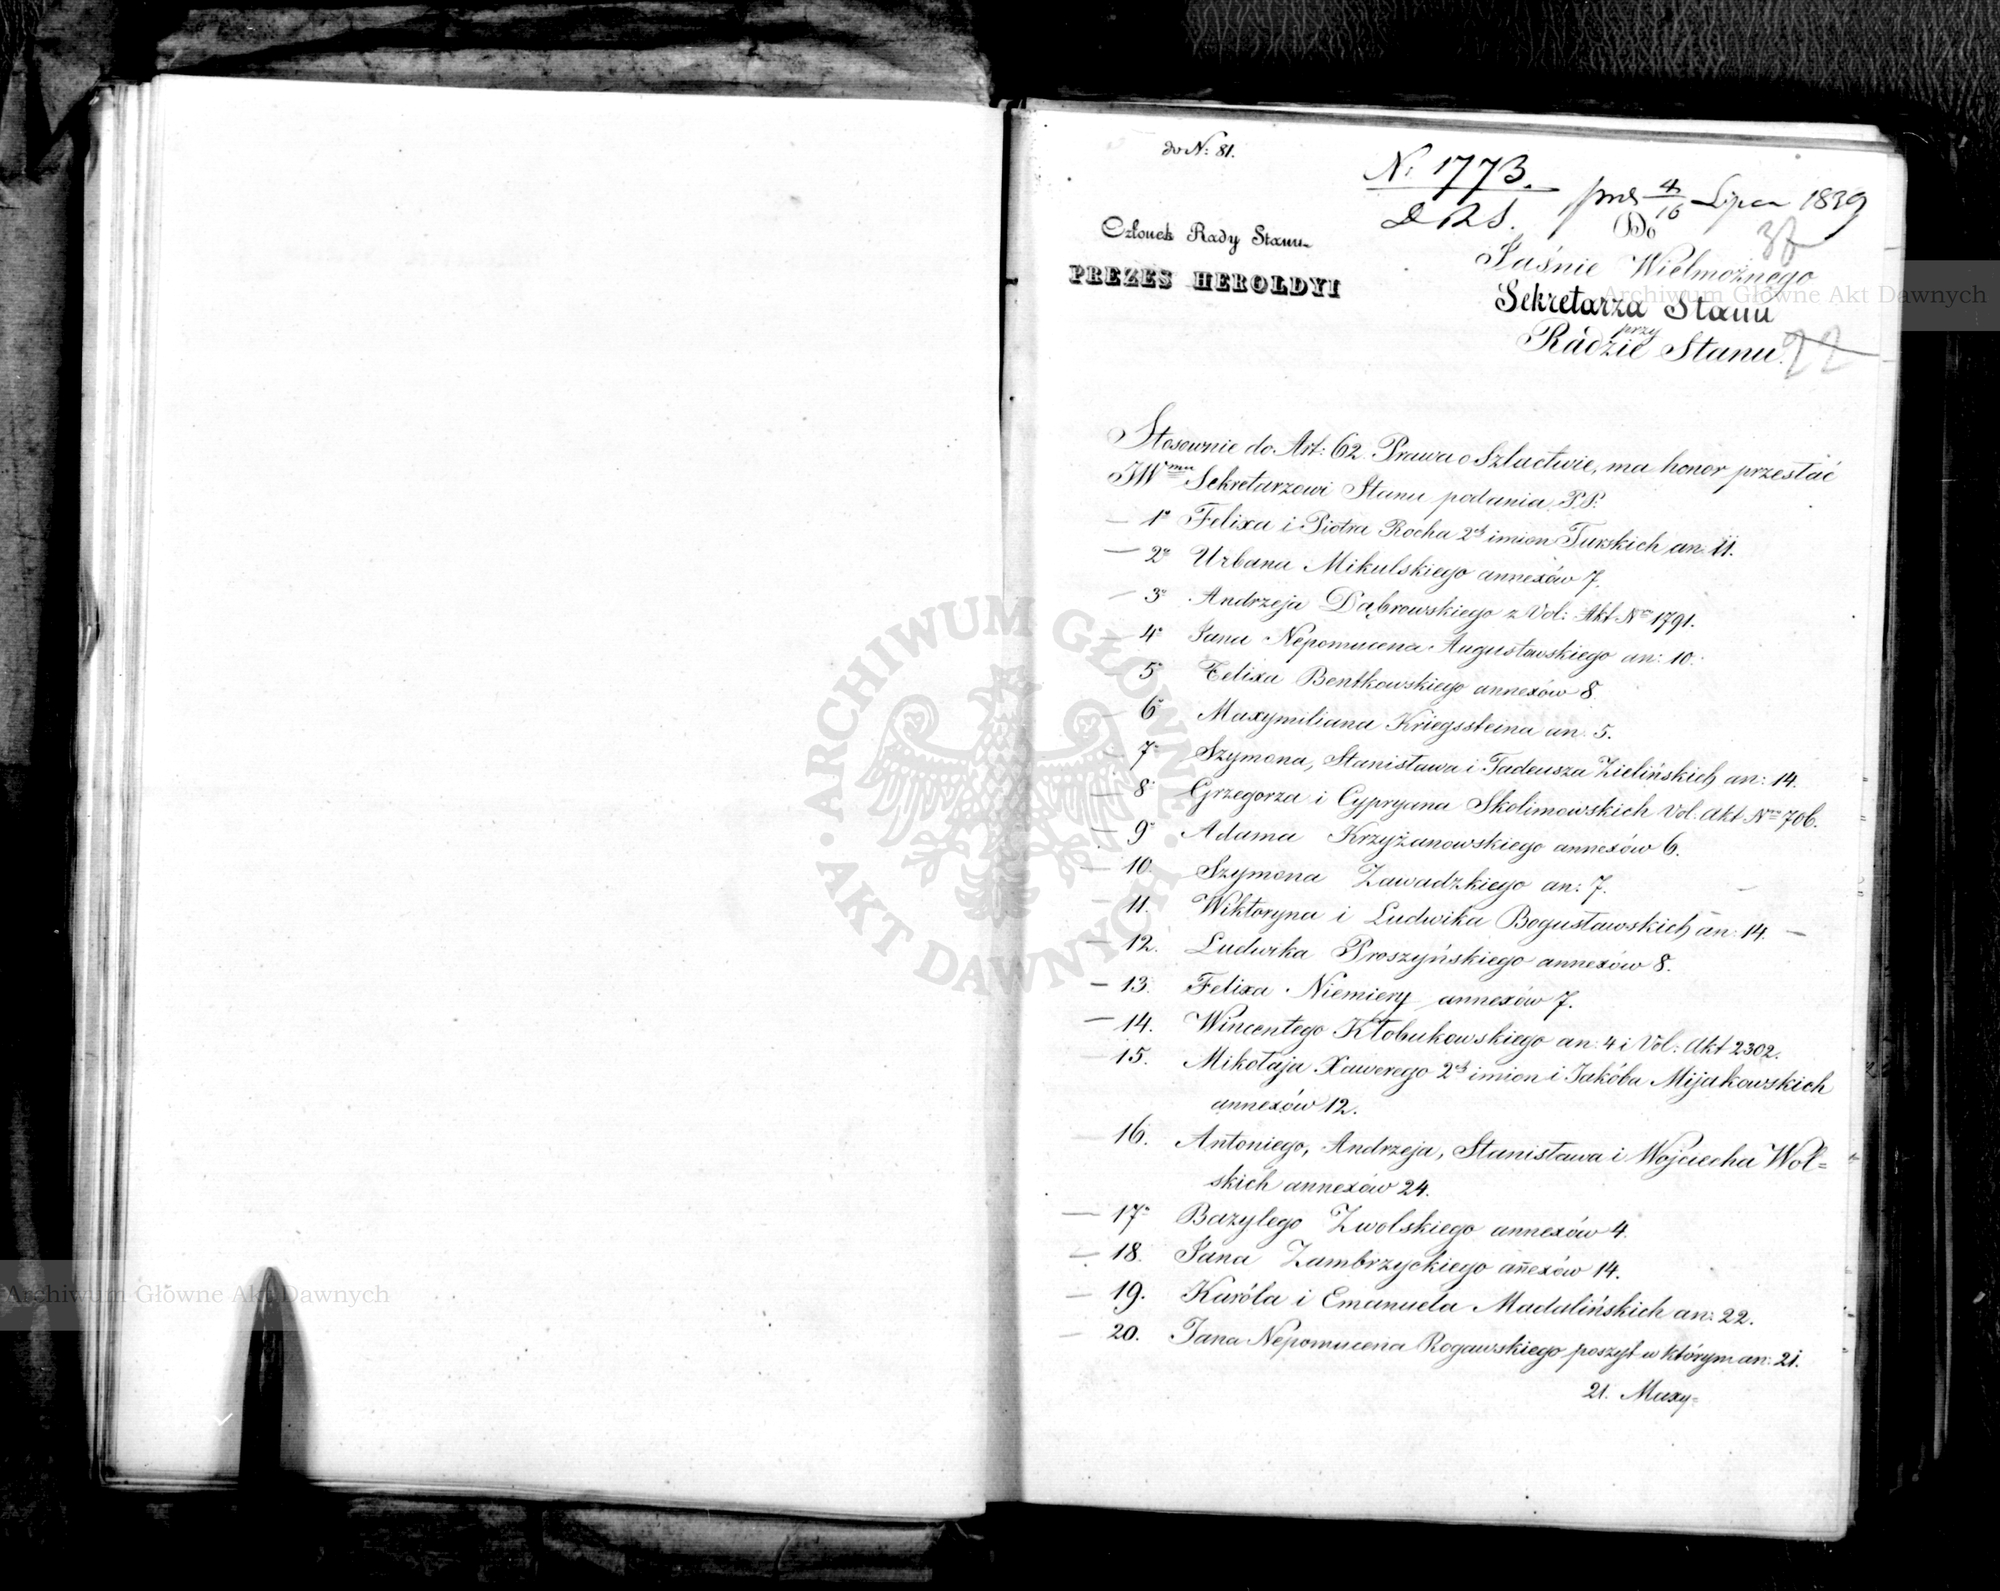 do N: 81.
N: 1773.
D R S.
pres 4/16 Lipca 1839
Członek Rady Stanu
PREZES HEROLDYI
Do
37
Jaśnie Wielmożnego
Sekretarza Stanu
przy
Radzie Stanu.
22
Stosownie do Art: 62. Prawa o Szlactwie, ma honor przesłać
JWmu Sekretarzowi Stanu podania P.P.
— 1o Felixa i Piotra Rocha 2ch imion Turskich an. 11.
— 2o Urbana Mikulskiego annexów 7.
— 3o Andrzeja Dąbrowskiego z Vol: Akt Nro 1791.
— 4o Jana Nepomucena Augustowskiego an: 10.
5 Felixa Bentkowskiego annexów 8
— 6 Maxymiliana Kriegssteina an. 5.
— 7o Szymona, Stanisława i Tadeusza Zielińskich an: 14.
— 8 Grzegorza i Cypryana Skolimowskich Vol. Akt Nro 706.
— 9o Adama Krzyżanowskiego annexów 6.
— 10. Szymona Zawadzkiego an: 7.
— 11. Wiktoryna i Ludwika Bogusławskich an: 14. —
— 12. Ludwika Proszyńskiego annexów 8.
— 13. Felixa Niemiery annexów 7.
— 14. Wincentego Kłobukowskiego an: 4 i Vol: Akt 2302.
15. Mikołaja Xawerego 2ch imion i Jakóba Mijakowskich
annexów 12.
16. Antoniego, Andrzeja, Stanisława i Wojciecha Wol=
skich annexów 24.
— 17o Bazylego Zwolskiego annexów 4.
— 18. Jana Zambrzyckiego an̄exów 14.
— 19. Karóla i Emanuela Madalińskich an: 22.
— 20. Jana Nepomucena Rogawskiego poszyt w którym an: 21.
21. Maxy=
Archiwum Główne Akt Dawnych
ARCHIWUM GŁÓWNE · AKT DAWNYCH ·
Archiwum Główne Akt Dawnych